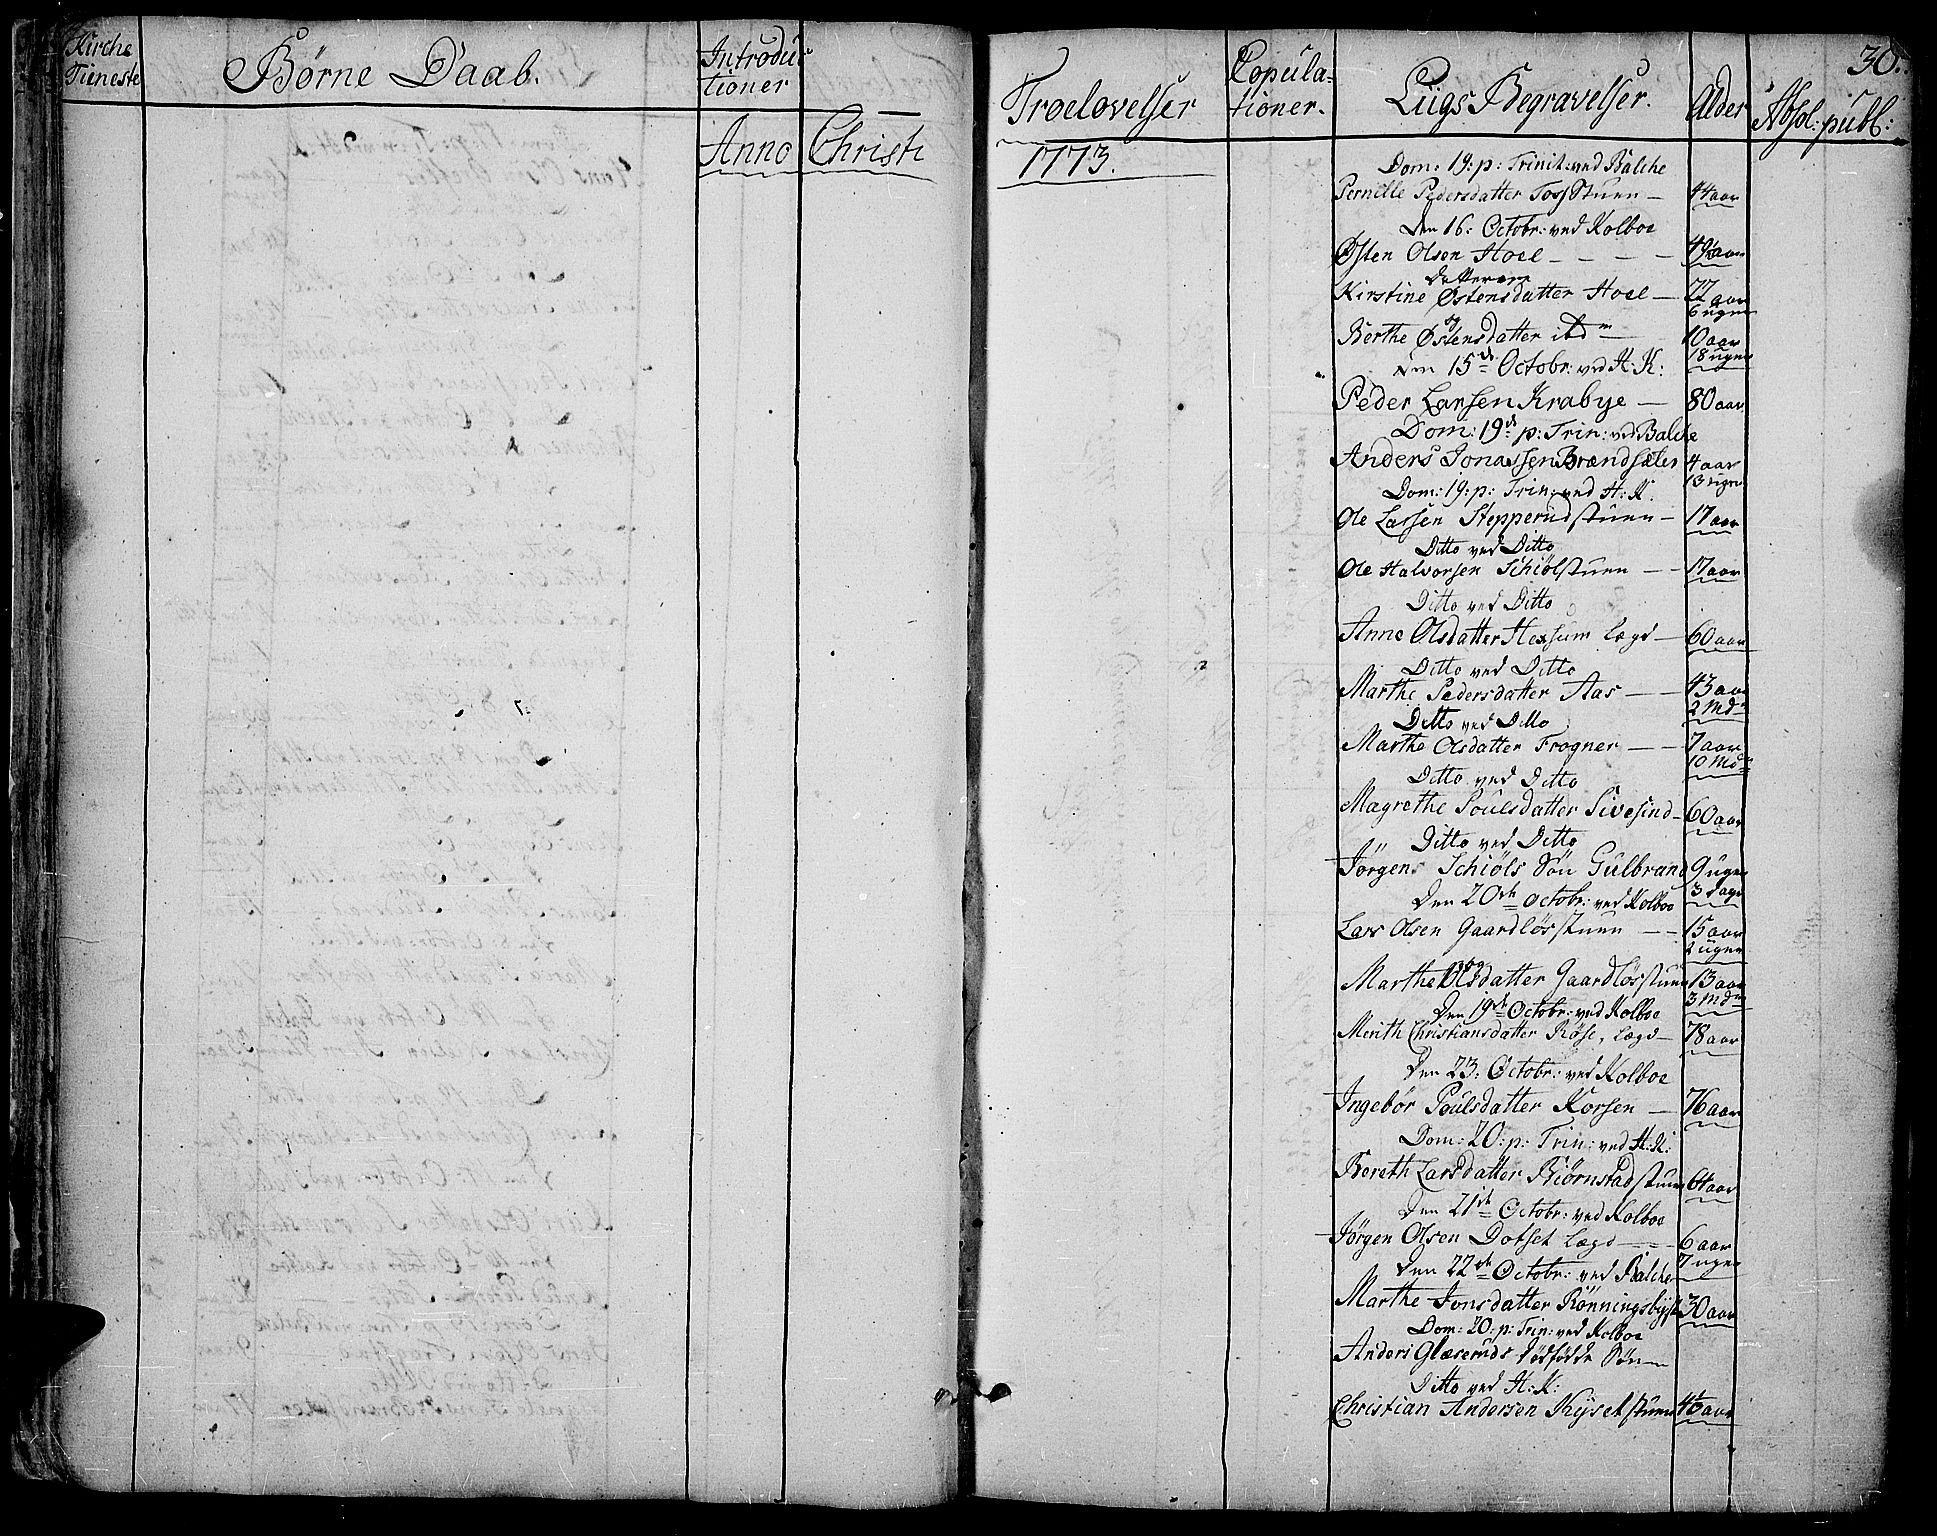 Kirche
Tieneste
Børne Daab.
Introduc
tioner
Anno Christi
30.
Troelovelser
Copula-
tioner.
Liigs Begravelser.
Alder
Absol: publ:
1773.
Dom: 19: p: Trinit: ved Balche
Pernille Pedersdatter Tossstuen — 44 aar
Den 16: Octobr: ved Kolboe
Østen Olsen Hoel - - - - 49½ aar
Dotteren
Kirstine Østensdatter Hoel — 22 aar
6 uger
og
Berthe Østensdatter ibdm — 10 aar
18 uger
Den 15de Octobr: ved H: K:
Peder Larsen Krabye — 80 aar
Dom: 19de p: Trin: ved Balche
Anders Jonassen Brændsæter 4 aar
13 uger
Dom: 19: p: Trin: ved H: K.
Ole Larsen Stepperudstuen — 17 aar
Ditto ved Ditto
Ole Halvorsen Schiölstuen — — 17 aar
Ditto ved Ditto
Anne Olsdatter Hexsum Lægd — 60 aar
Ditto ved Ditto
Marthe Pedersdatter Aas — — 43 aar
2 Mdr
Ditto ved Ditto
Marthe Olsdatter Frogner — — 7 aar
10 Mdr
Ditto ved Ditto
Magrethe Poulsdatter Sivesind — 60 aar
Ditto ved Ditto
Jörgens Schiöls Sön Gulbrand 9 uger
3 dage
Den 20de Octobr: ved Kolboe
Lars Olsen Gaardlösstuen — — 15 aar
2 uger
og
Marthe Olsdatter Gaardlösstuen 13 aar
3 Mdr
Den 19de Octobr: ved Kolboe
Merith Christiansdatter Röse, Lægd — 78 aar
Den 23: Octobr: ved Kolboe
Ingebör Poulsdatter Korsen — 76 aar
Dom: 20: p: Trin: ved H: K:
Bereth Larsdatter Biörnstadstuen 64 aar
Den 21de Octobr: ved Kolboe
Jörgen Olsen Dotset Lægd — — 6 aar
7 uger
Den 22de Octobr: ved Balche
Marthe Jonsdatter Rönningsbyst 30 aar
Dom: 20: p: Trin: ved Kolboe
Anders Glæseruds dödfödde Sön —
Ditto ved H: K:
Christian Andersen Kysetstuen 4½ aar